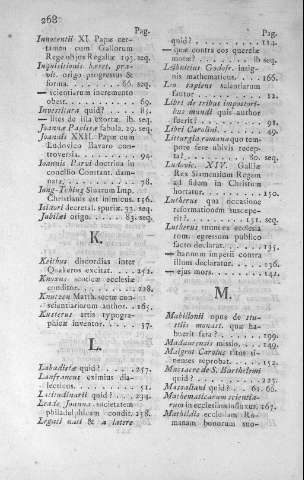 268
Pag.
Innocentii XI. Papæ certamen cum Gallorum
Rege ob jus Regaliæ 193. seq.
Inquisitionis heret. pravit.
origo progressus &
forma. 66. seq.
— scientiarum incremento
obest. 69.
Investitura quid? 83.
— lites de illa exortæ. ib. seq.
Joannæ Papissæ fabula. 29. seq.
Joannis XXII. Papæ cum
Ludovico Bavaro controversia. 94.
Joannis Parvi doctrina in
concilio Constant. damnata.
78.
Jong-Tching Sinarum Imp.
Christianis est inimicus. 156.
Isidori decretal. spuriæ. 33. seq.
Jubilæi origo. 83. seq.
K.
Keithus discordias inter
Quakeros excitat. 252.
Knoxus scoticæ ecclesiæ
conditor. 228.
Knutzen Matth. sectæ conscientiariorum
author. 165.
Kusterus artis typographicæ
inventor. 37.
L.
Labadistæ quid? 257.
Lanfrancus eximius dialecticus.
51.
Latitudinarii quid? 234.
Leade Joanna societatem
philadelphicam condit. 238.
Legati nati & a latere
Pag.
quid? 114.
— quæ contra eos querelæ
motæ? ib seq.
Leibnitius Godofr. insignis
mathematicus. 166.
Leo sapiens scientiarum
fautor 12.
Libri de tribus impostoribus
mundi quis author
fuerit? 91.
Libri Carolini. 49.
Liturgia romana quo tempore
fere ubivis recepta?
62.
Ludovic. XIV. Galliæ
Rex Siamensium Regem
ad fidem in Christum
hortatur. 150.
Lutherus qua occasione
reformationem susceperit?
151. seq.
Lutherus monens ecclesia
rom. egressum publico
facto declarat. 135.
— bannum imperii contra
illum declaratur. 136.
— ejus mors. 142.
M.
Mabillonii opus de studiis
monast. quæ habuerit
fata? 199.
Madurensis missio. 149.
Maigrot Carolus ritus sinenses
reprobat. 152.
Massacre de S. Barthelemi
quid? 225.
Massaliani quid? 62. 66.
Mathematicarum scientiarum
in ecclesia influxus. 167.
Mathildis ecclesiam Romanam
bonorum suo-